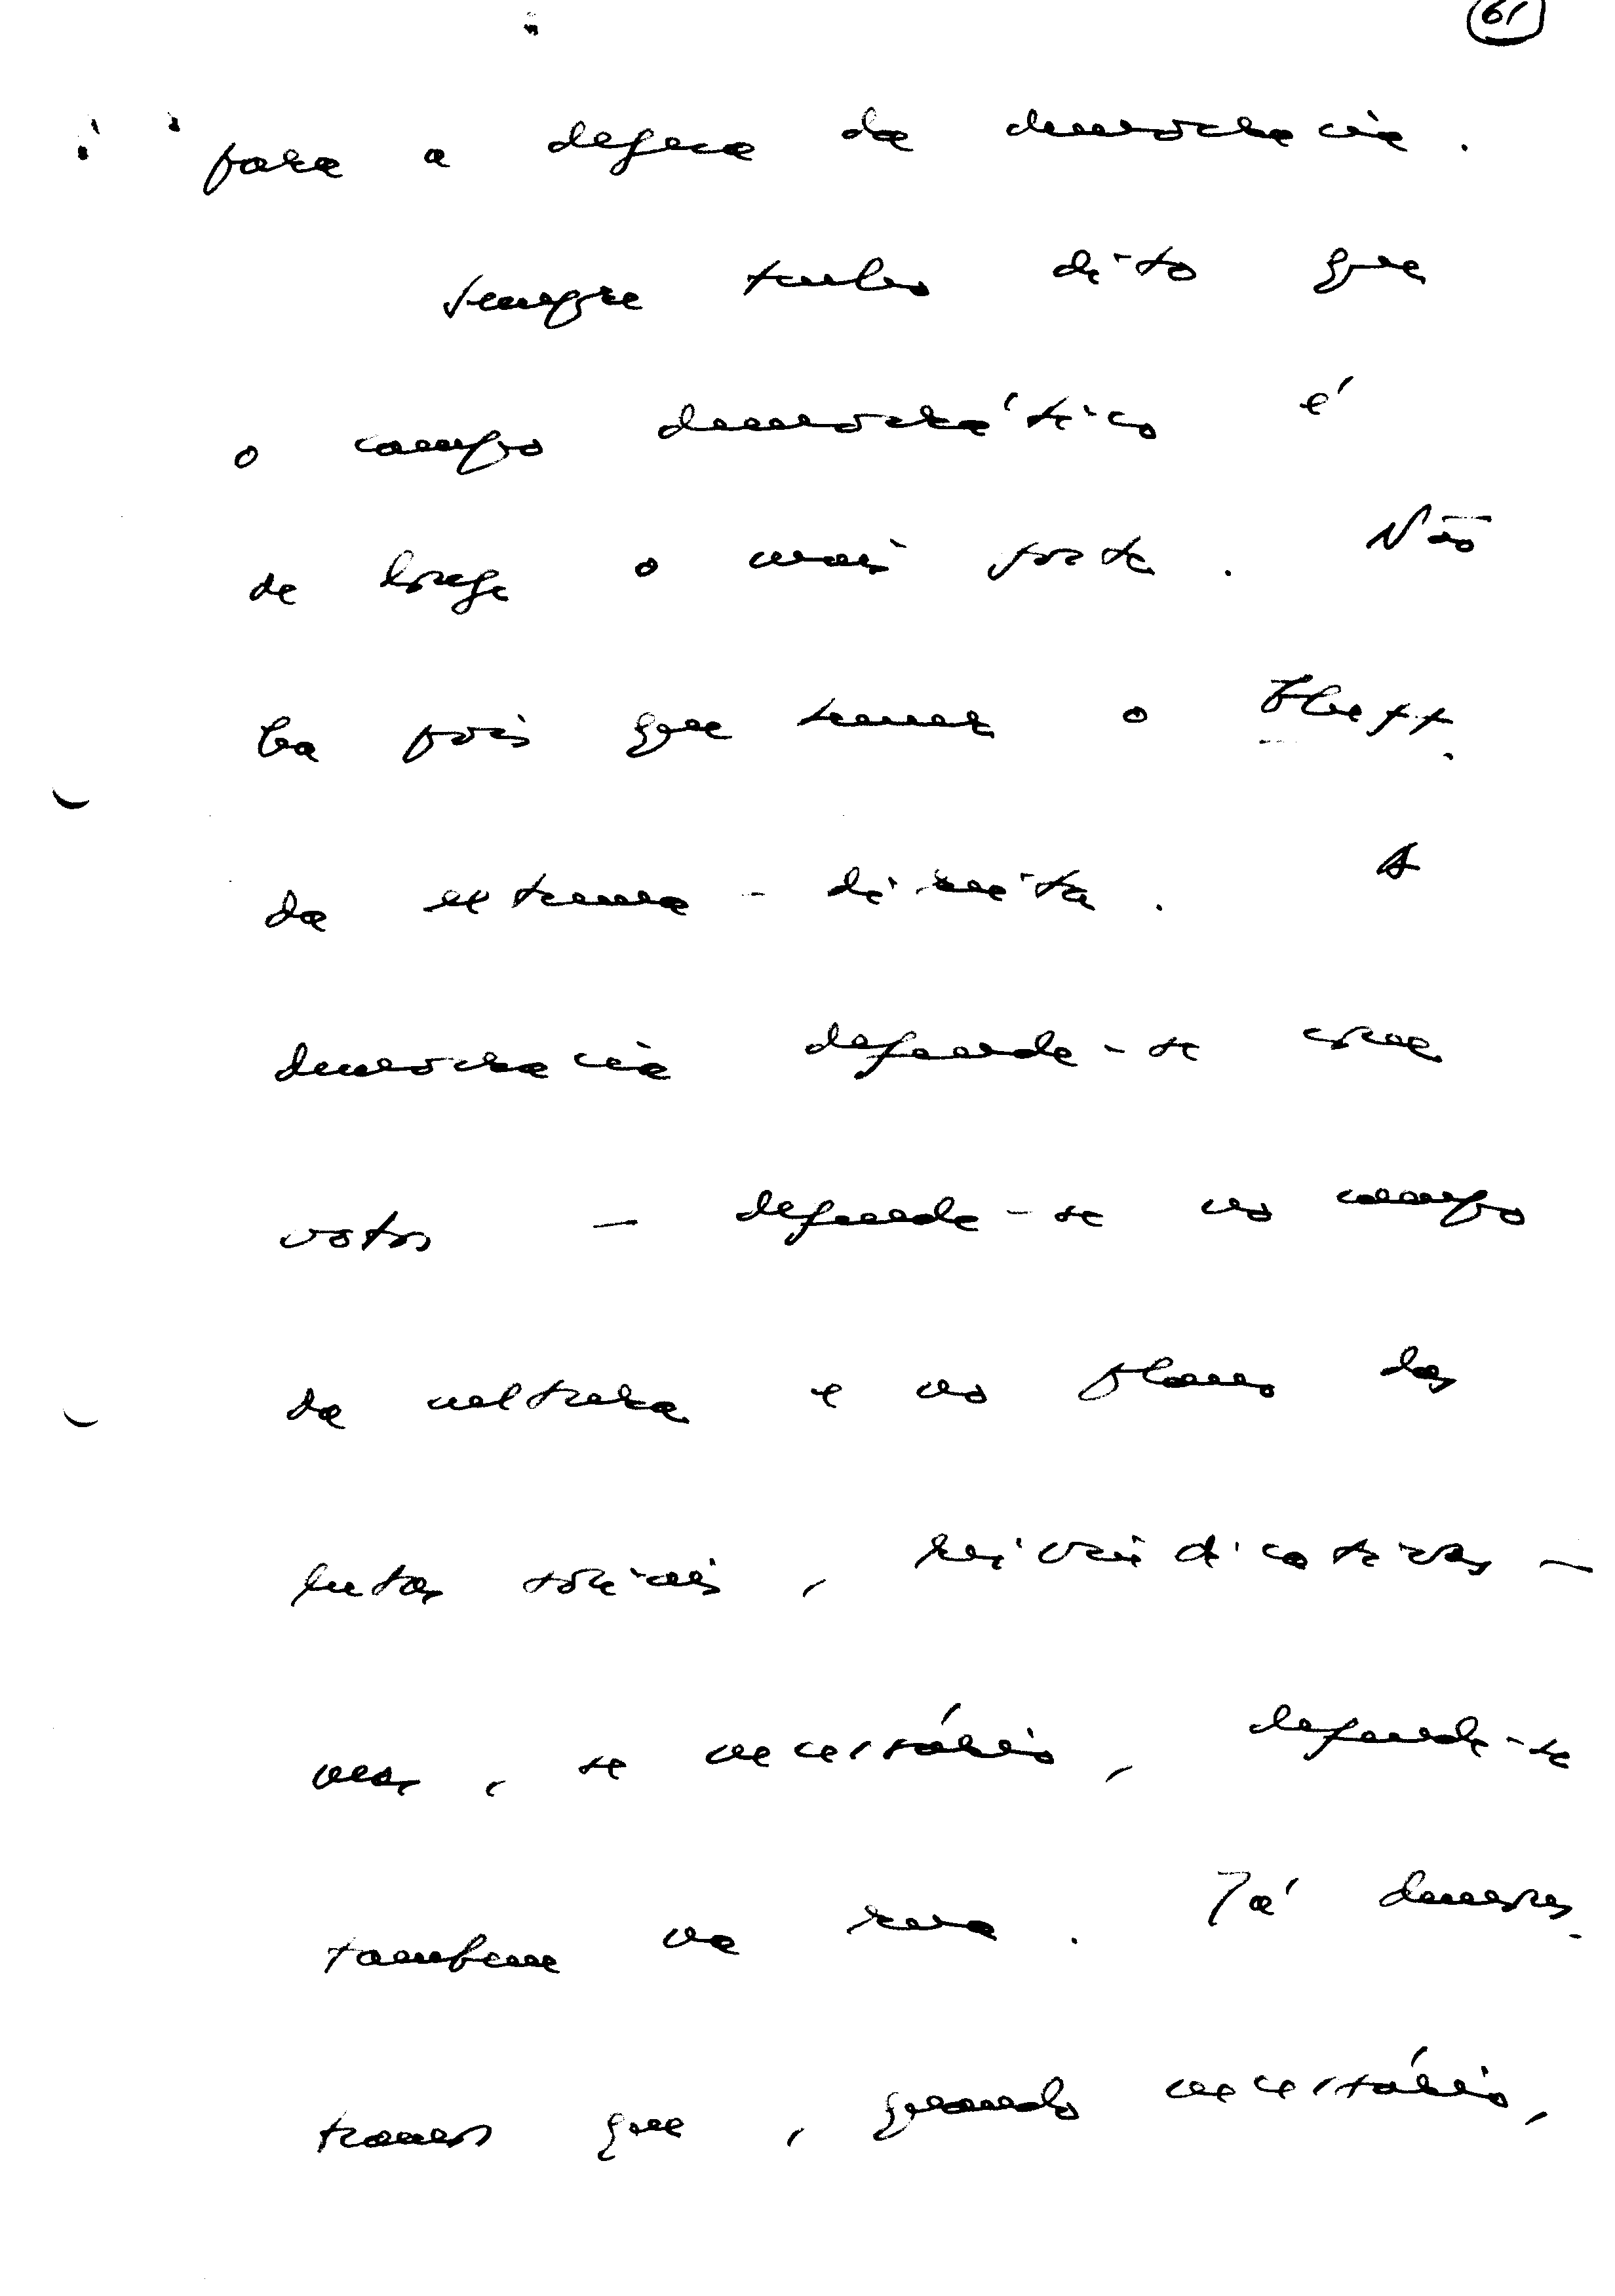 61
para a defesa da democracia.
Sempre tenho dito que
o campo democrático é
de longe o mais forte. Não
ha pois que temer o bluff
da extrema-direita. A
democracia defende-se com
votos — defende-se no campo
da cultura e no plano das
lutas sociais, reivindicativas —
mas, se necessário, defende-se
tambem na rua. Já demons-
tramos que, quando necessário,